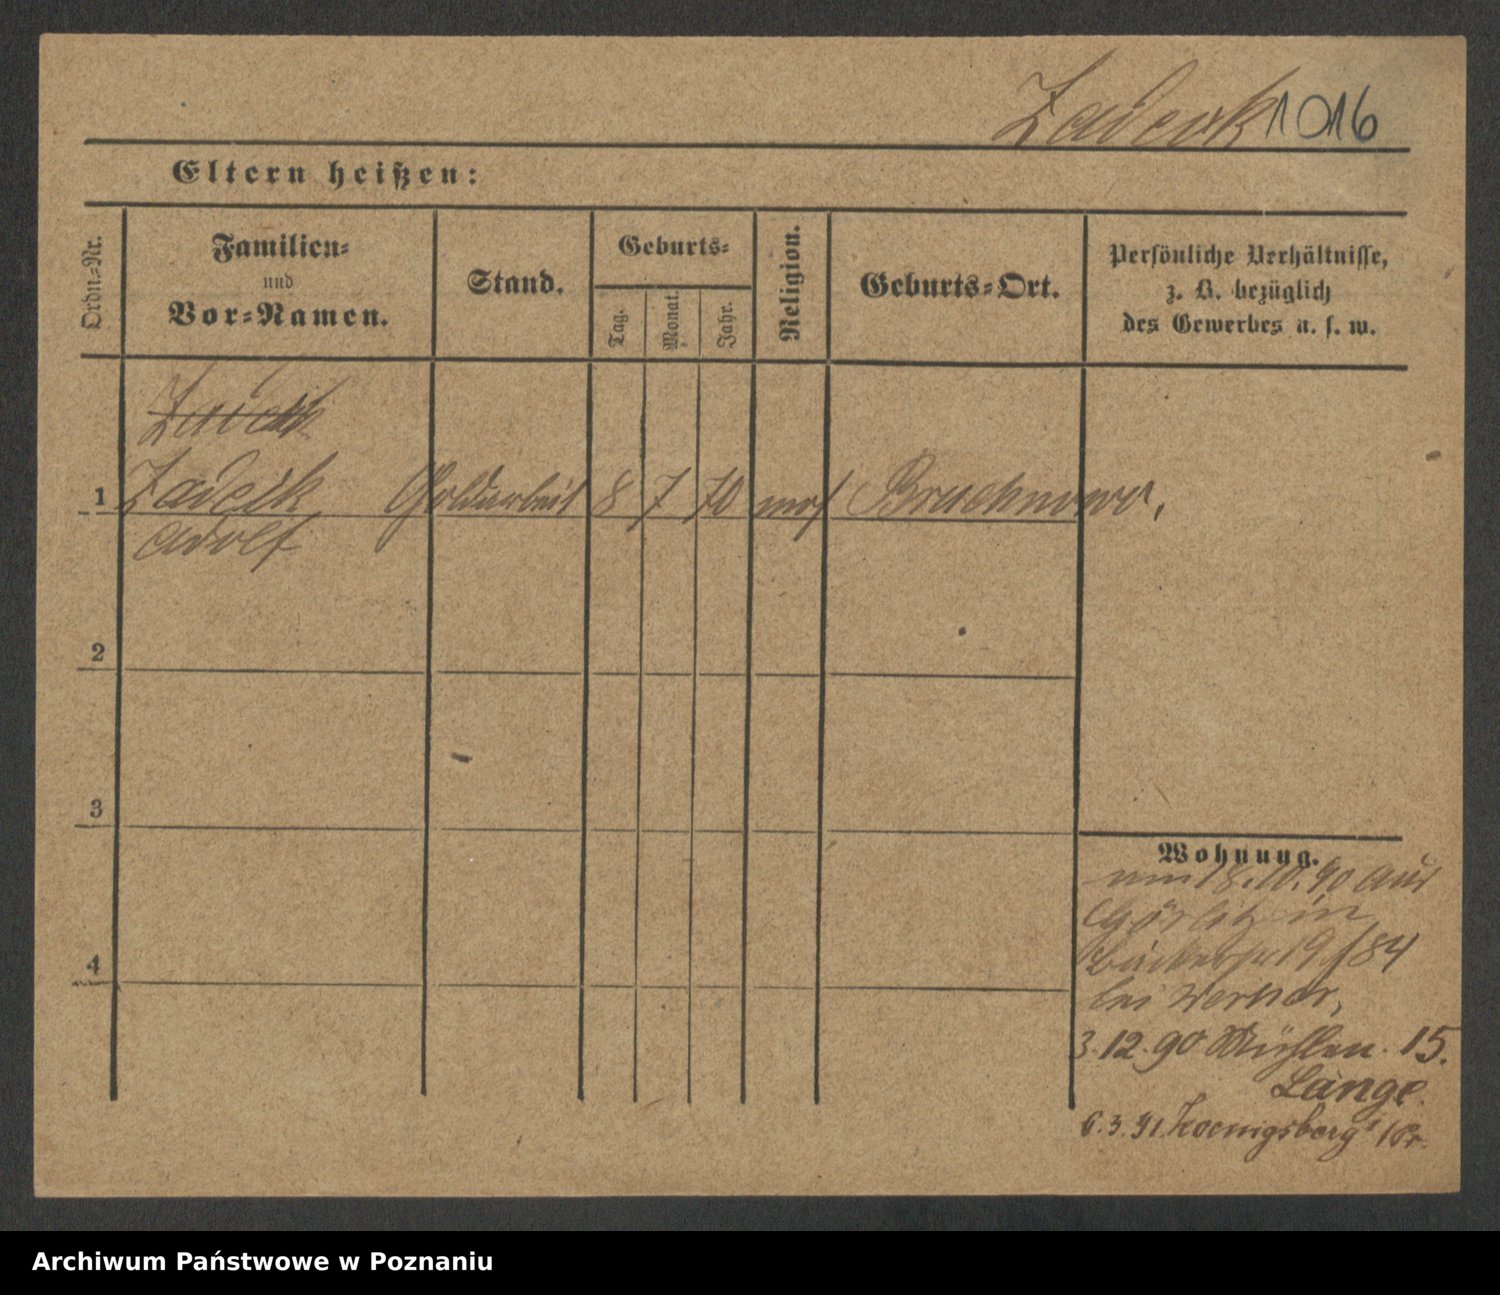 Zadeck 1016
Eltern heißen:
Ordn.=Nr.
Familien=
und
Vor=Namen.
Stand.
Geburts=
Tag.
Monat.
Jahr.
Religion.
Geburts=Ort.
Persönliche Verhältnisse,
z. B. bezüglich
des Gewerbes u. s. w.
1 Zadeck Goldarbeit 8 7 70 mos Bruchnowo,
Adolf
2
3
4
Wohnung.
18.10.90 aus
Görlitz in
19/84
bei Werner,
3.12.90 Mühlen. 15.
Lange.
6.3.91 Koenigsberg i/Pr.